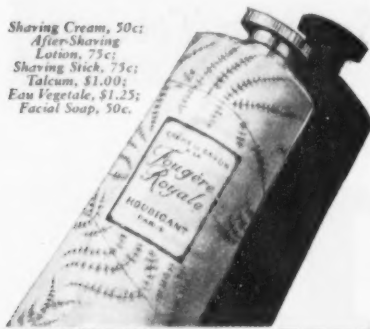 Shaving Cream, 50c;
After-Shaving
Lotion, 75c;
Shaving Stick, 75c;
Talcum, $1.00;
Eau Vegetale, $1.25;
Facial Soap, 50c.
Fougère
Royale
HOUBIGANT
PARIS